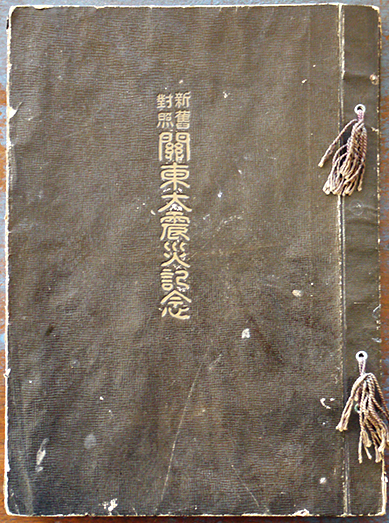 新舊
對照
關東大震災記念